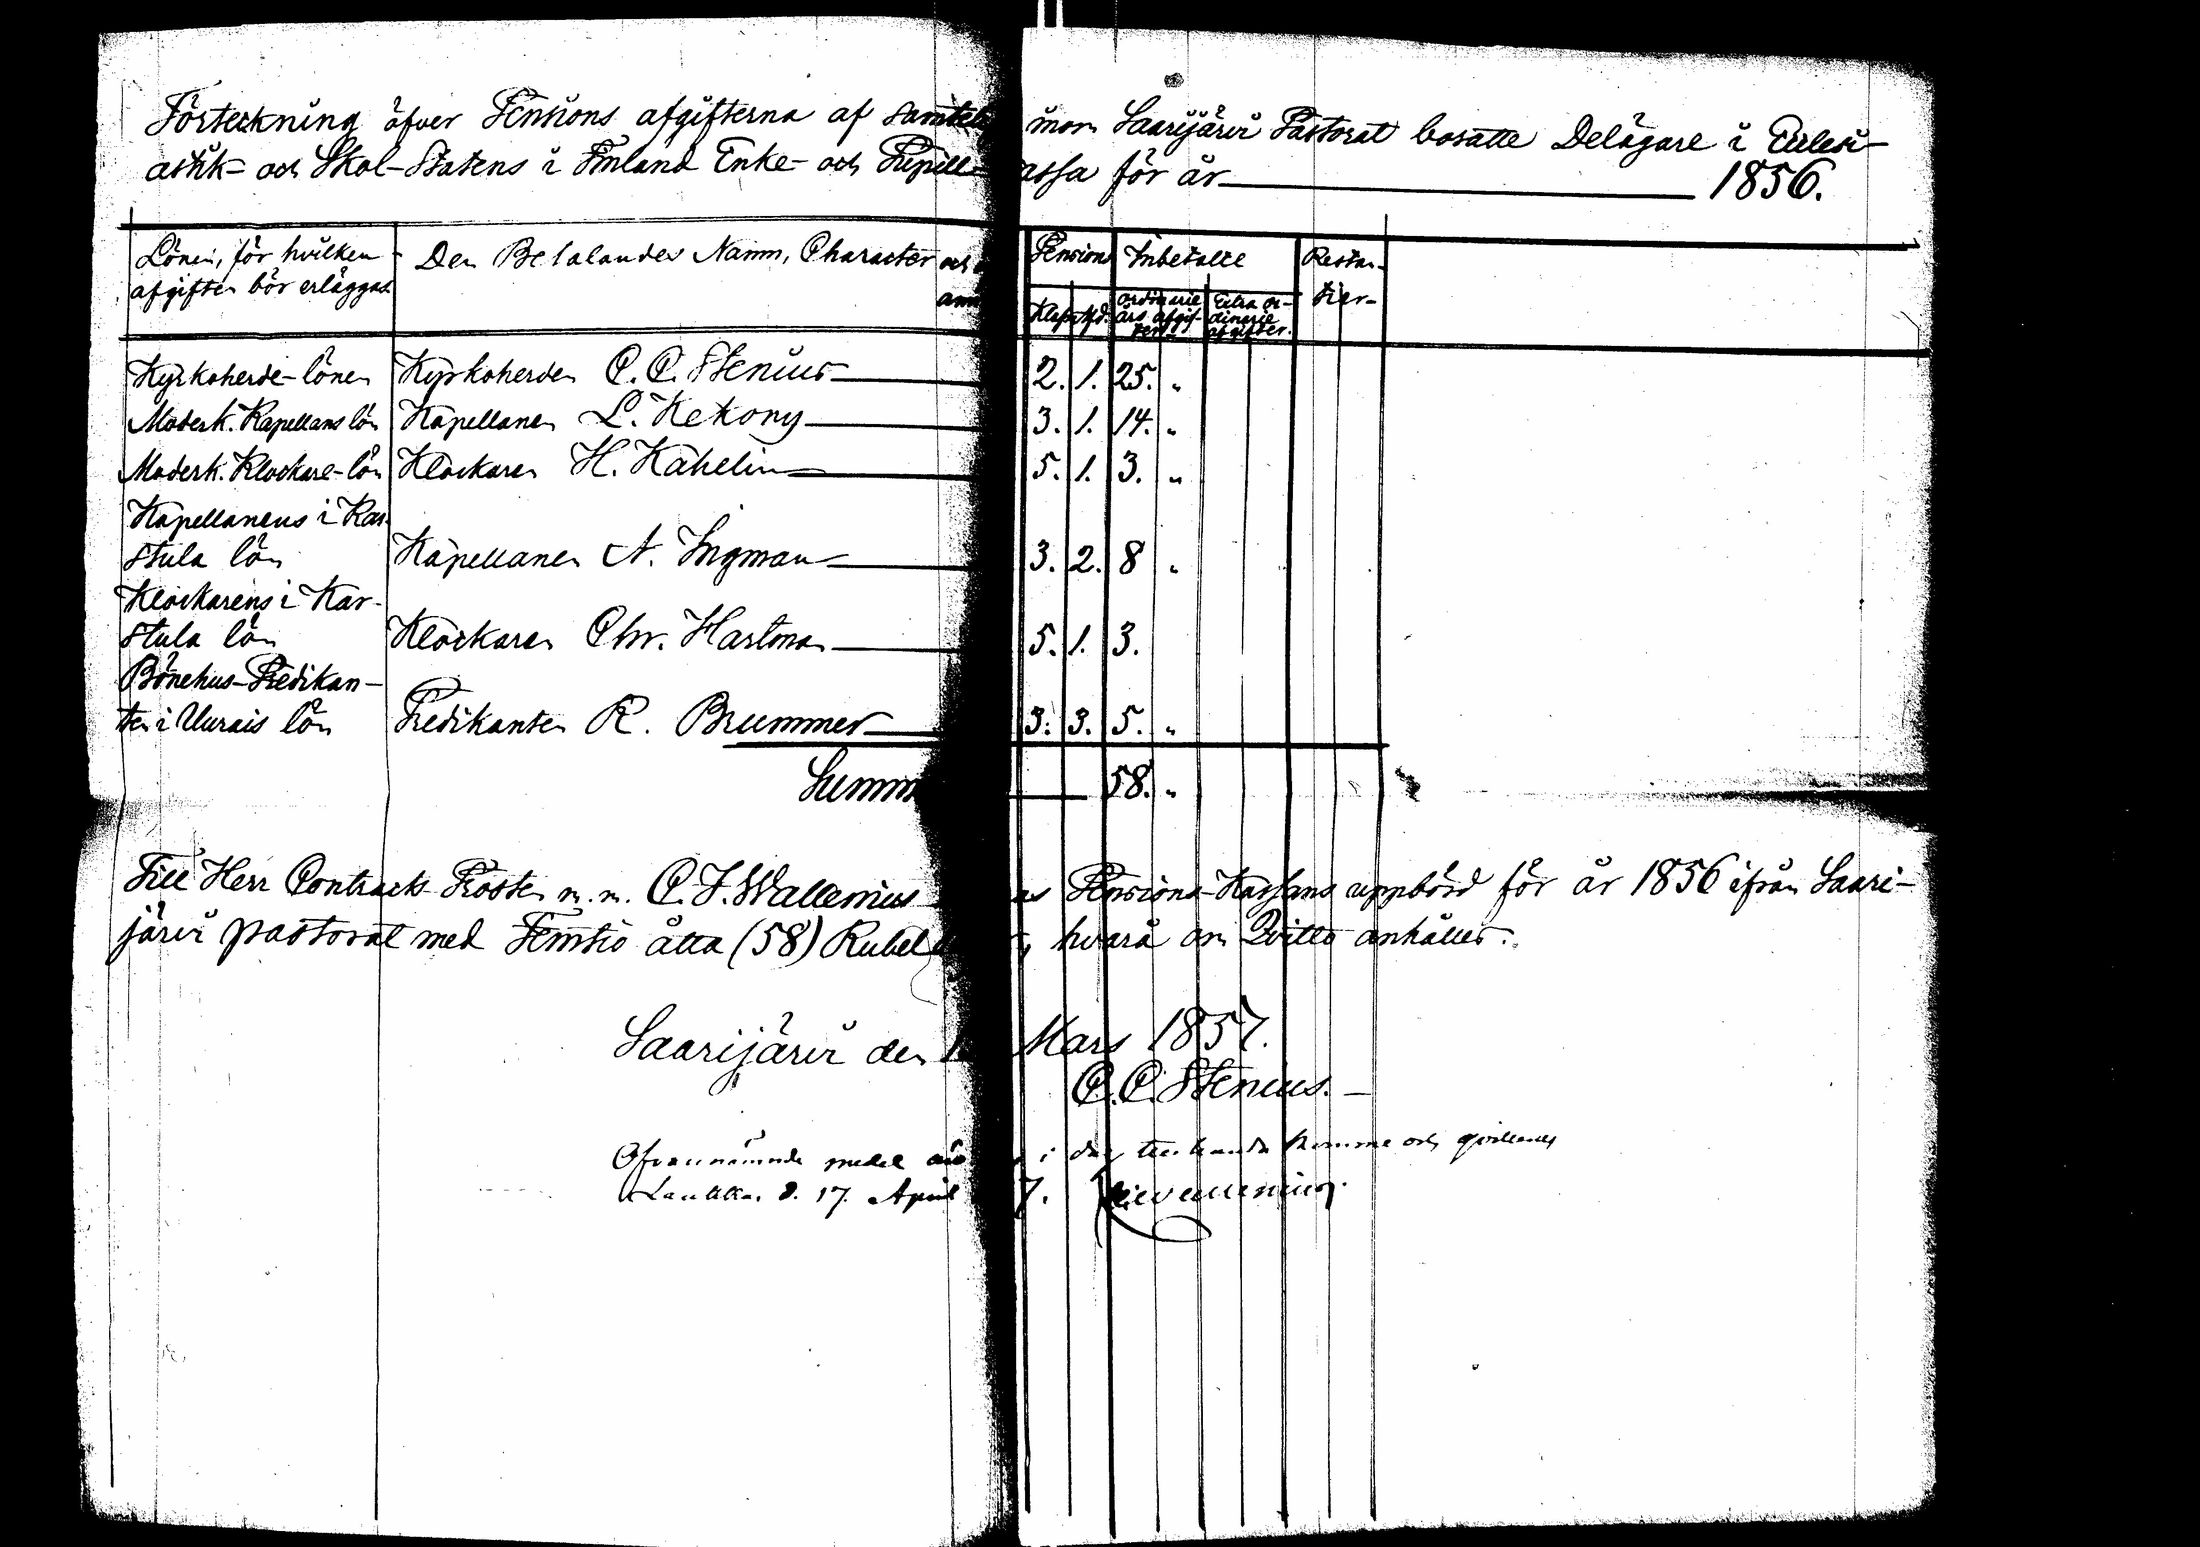 Förteckning öfver Pensions afgifterna af samtel inom Saarijärvi Pastorat bosatte Delägare i Ecclesi-
astik- och Skol-Statens i Finland Enke- och Pupill- assa för år 1856.
Lönen, för hvilken Den Betalandes Namn, Character och Pensions Inbetalte Restan-
afgiften bör erläggas Klass Afd. ordinarie års afgif-ter Extra or-dinarie afgifter. tier
Kyrkoherde-lönen Kyrkoherden C. C. Stenius 2. 1. 25. "
Moderk. Kapellans lön Kapellanen L. Kekony 3. 1. 14. "
Moderk. Klockare-lön Klockaren H. Kahelin 5. 1. 3. "
Kapellanens i Kar-
stula lön Kapellanen A. Ingman 3. 2. 8 "
Klockarens i Kar-
stula lön Klockaren Chr. Hartman 5. 1. 3.
Bönehus-Predikan-
ten i Uurais lön Predikanten R. Brummer 3. 3. 5. "
Summ 58. "
Till Herr Contracts Prosten m. m. C. J. Wallenius Pensions-Kassans uppbörd för år 1856 ifrån Saari-
järvi pastorat med Femtio åtta (58) Rubel hvarå om Qvitto anhålles.
Saarijärvi den Mars 1857.
C. C. Stenius.
Ofvannämnde medel i dag tillhanda komme och qvitteras
Laukka d. 17. April 7. Wallenius